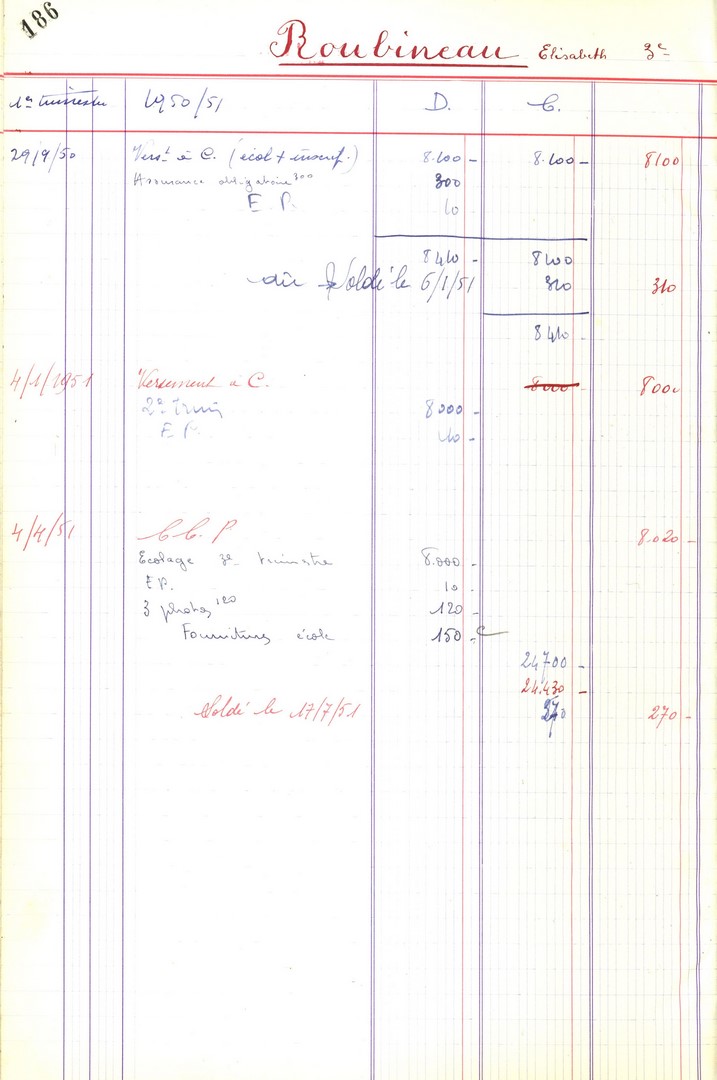 186
Roubineau Elisabeth 3e
1er trimestre 1950/51 D. C.
29/9/50 Verst à C. (écol + inscript.) 8.100 - 8.100 - 8100
Assurance obligatoire 300 300
E P. 10
8410 - 8100
dû Soldé le 6/1/51 310 310
8410
4/1/1951 Versement à C. 8000 8000
2e trim 8000 -
E P. 10 -
4/4/51 C.C.P 8.020 -
Ecolage 3e trimestre 8.000 -
E P. 10 -
3 photos 120 120 -
Fournitures école 150 -
24700 -
24.430 -
Soldé le 17/7/51 270 270 -